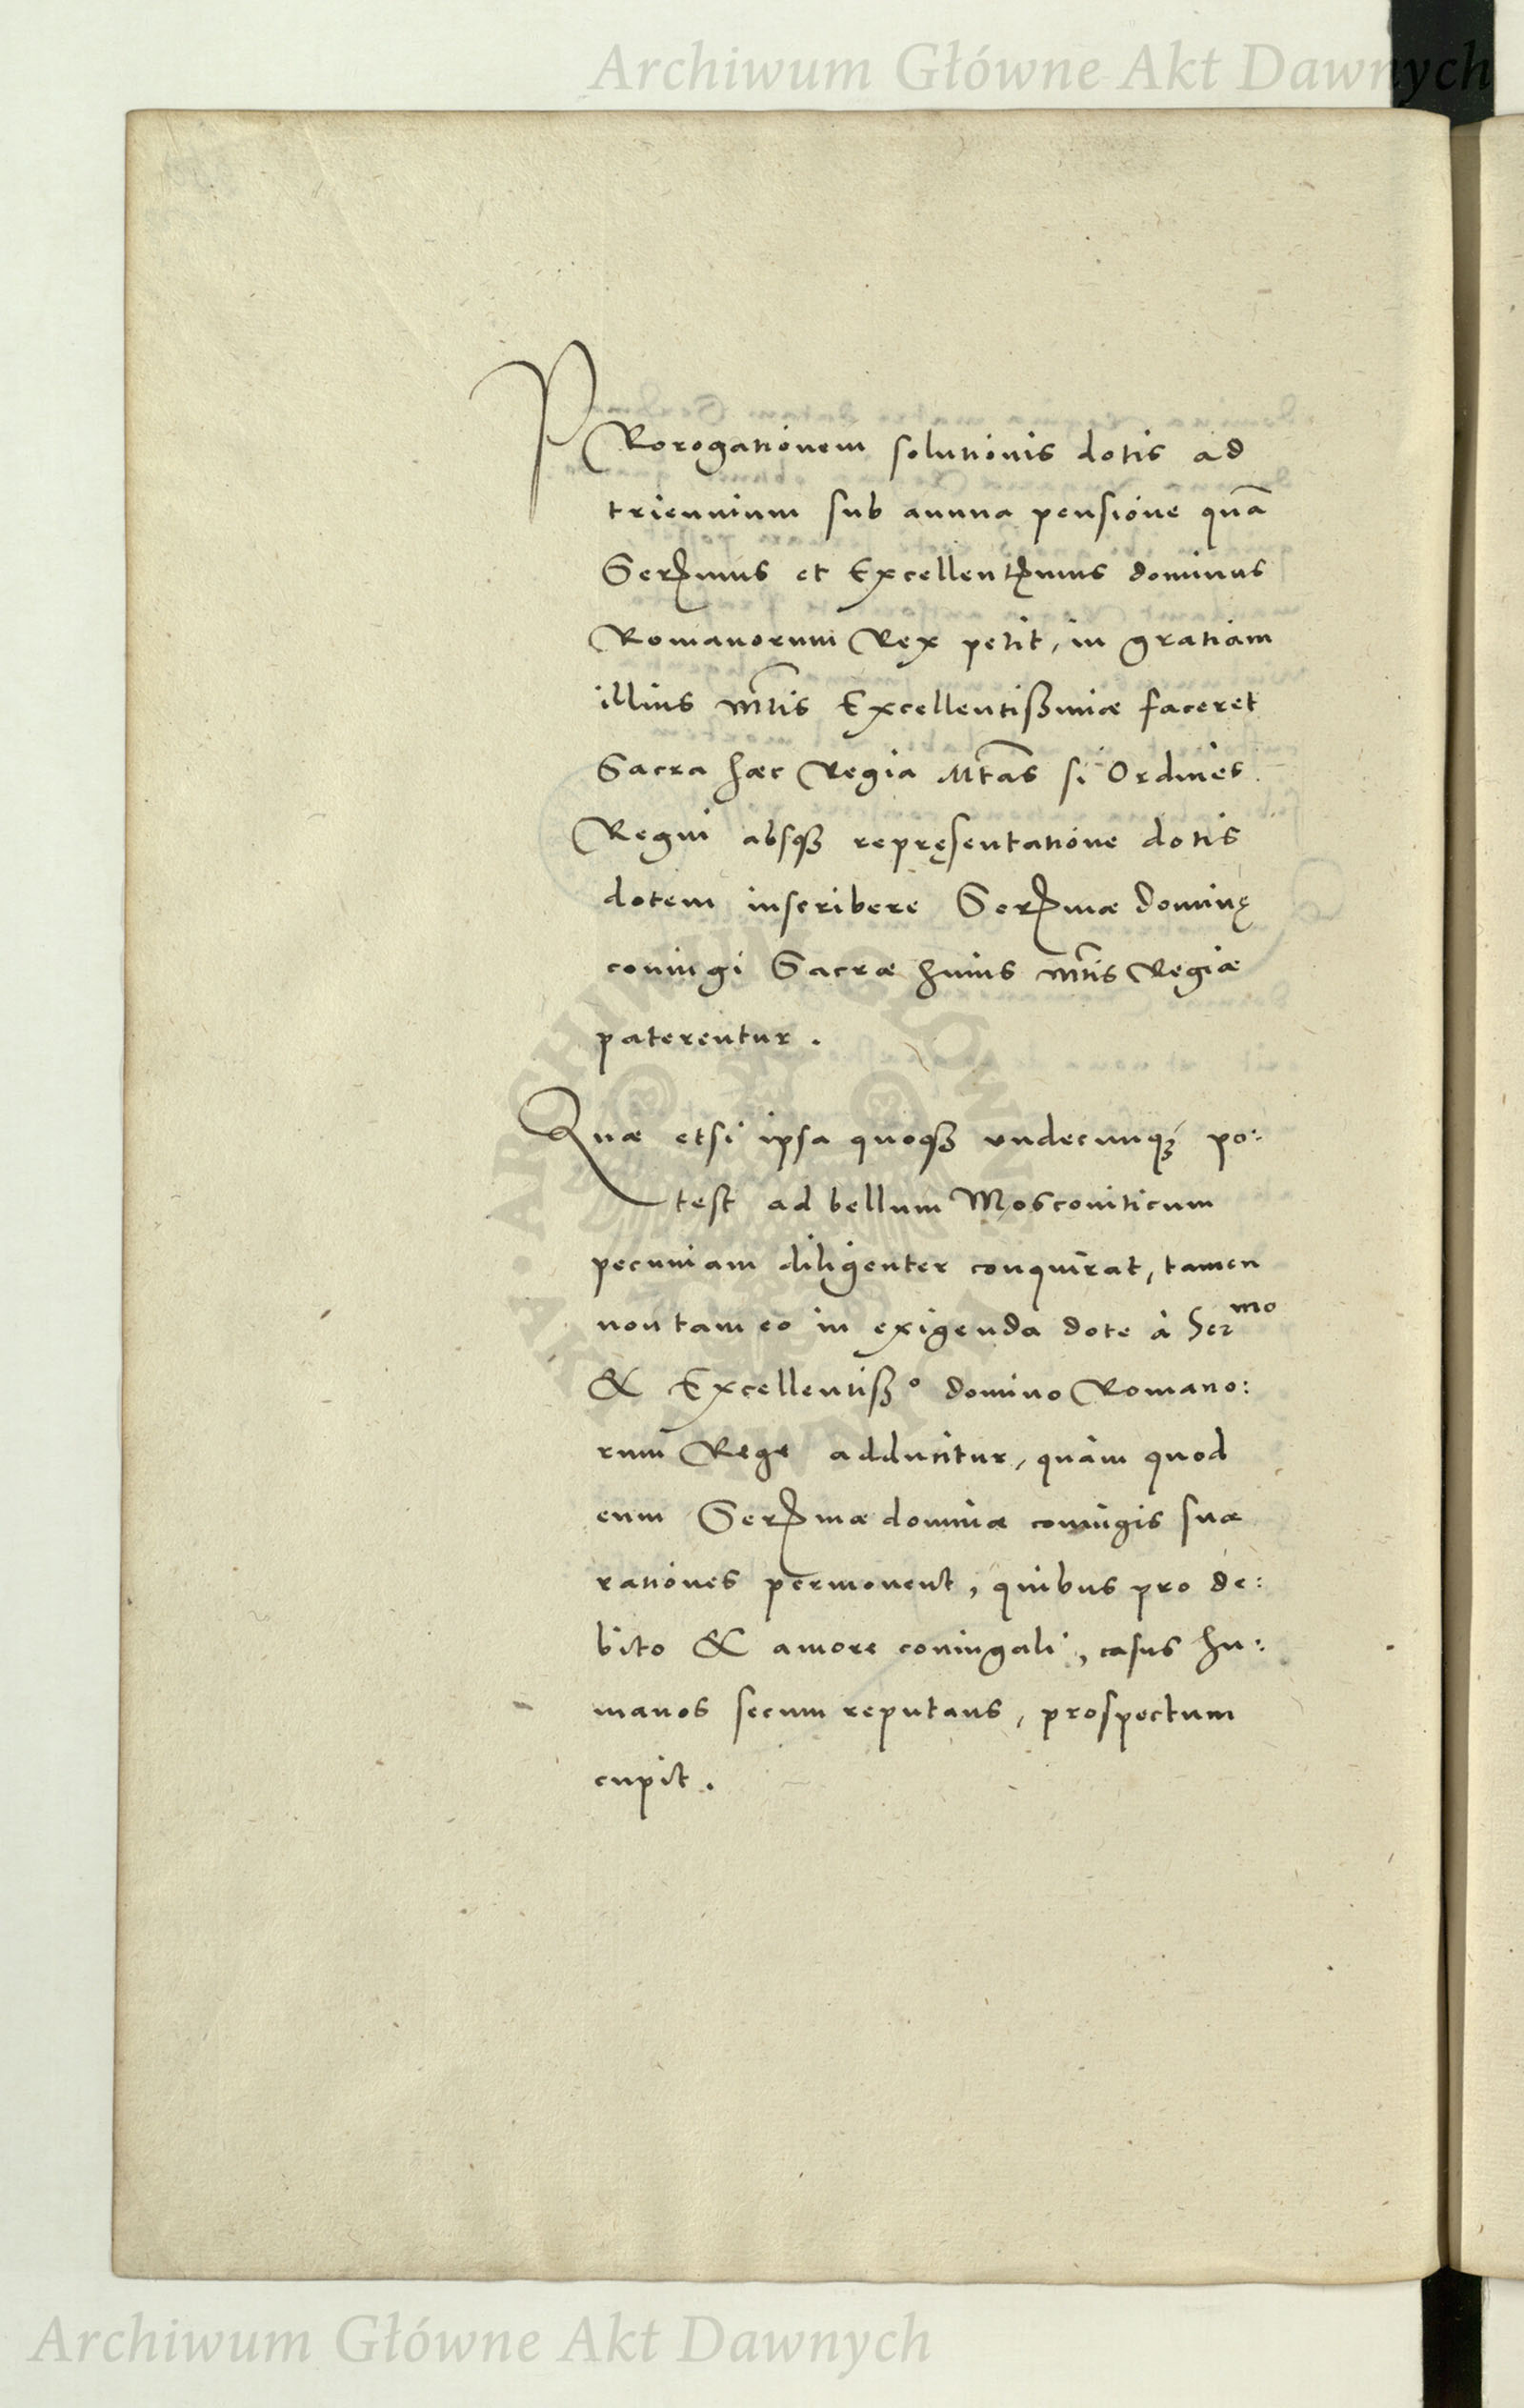 Archiwum Główne Akt Dawnych
PRorogationem solutionis dotis ad
triennium sub annua pensione quā
Sermus et Excellentmus dominus
Romanorum Rex petit, in gratiam
illius Mtis Excellentißimæ faceret
Sacra hæc Regia Mtas si Ordines
Regni absq₃ repręsentatione dotis
dotem inscribere Sermæ Dominę
coniugi Sacræ huius Mtis Regiæ
paterentur.
Quæ etsi ipsa quoq₃ undecunq₃ po:
test ad bellum Moscouiticum
pecuniam diligenter conquirat, tamen
non tam eo in exigenda dote à Sermo
& Excellentißo domino Romano:
rum Rege adducitur, quàm quod
eum Sermæ dominæ coniugis suæ
rationes permouent, quibus pro de:
bito & amore coniugali, casus hu:
manos secum reputans, prospectum
cupit.
ARCHIWUM GŁÓWNE AKT DAWNYCH
Archiwum Główne Akt Dawnych